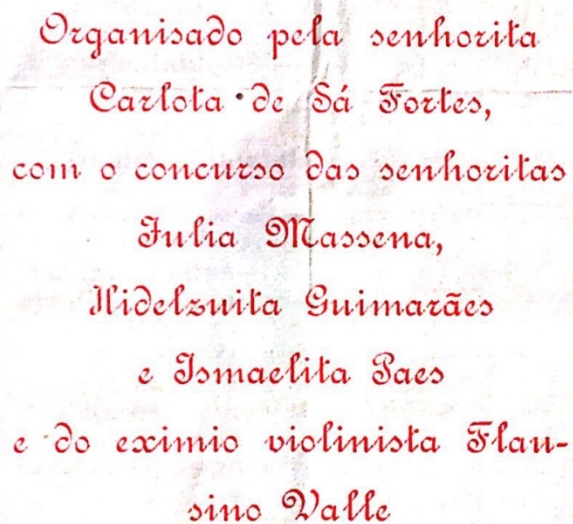 Organisado pela senhorita
Carlota de Sá Fortes,
com o concurso das senhoritas
Julia Massena,
Nidelzuita Guimarães
e Ismaelita Paes
e do eximio violinista Flau-
sino Valle